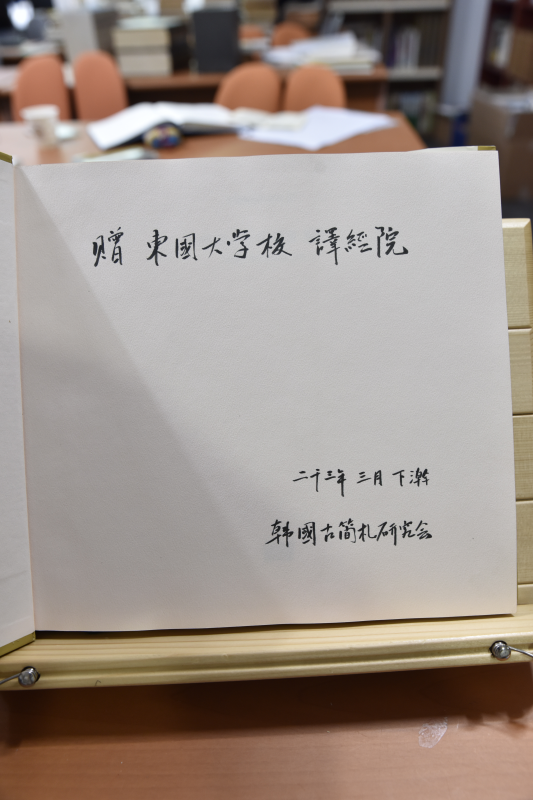 贈 東國大学校 譯經院
二千三年 三月 下澣
韩國古簡札研究会